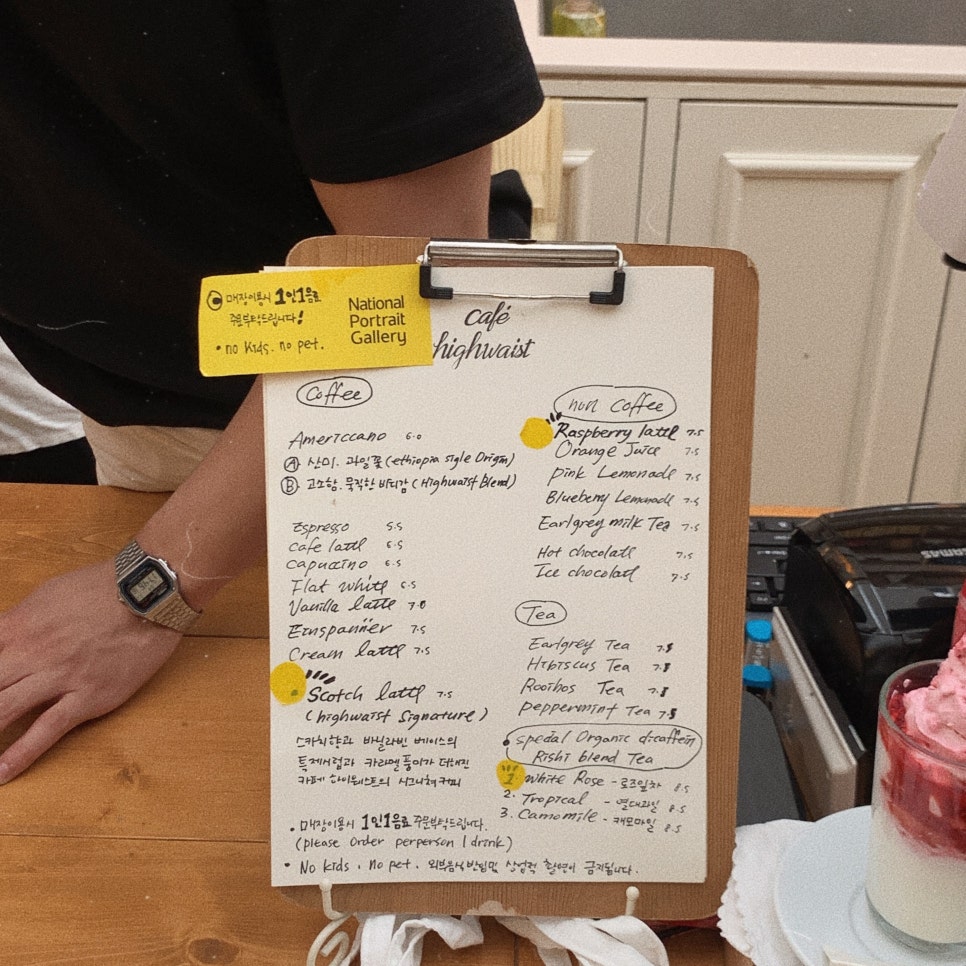 매장이용시 1인1음료
주문부탁드립니다!
• no kids. no pet.
National
Portrait
Gallery
café
highwaist
Coffee
Americcano 6.0
Ⓐ 산미. 과일꽃 (ethiopia sigle Origin)
Ⓑ 고소함. 묵직한 바디감 (Highwaist Blend)
Espresso 5.5
Cafe latte 6.5
Capuccino 6.5
Flat white 6.5
Vanilla latte 7.0
Einspanner 7.5
Cream latte 7.5
Scotch latte 7.5
(highwaist Signature)
스카치향과 바닐라빈 베이스의
특제시럽과 카라멜 풍미가 더해진
카페 하이웨스트의 시그니쳐 커피
non coffee
Raspberry latte 7.5
Orange Juice 7.5
Pink Lemonade 7.5
Blueberry Lemonade 7.5
Earlgrey milk Tea 7.5
Hot chocolate 7.5
Ice chocolate 7.5
Tea
Earlgrey Tea 7.5
Hibiscus Tea 7.5
Rooibos Tea 7.5
Peppermint Tea 7.5
• Special Organic decaffein
Rishi blend Tea
1. White Rose - 로즈일차 8.5
2. Tropical - 열대과일 8.5
3. Camomile - 캐모마일 8.5
• 매장이용시 1인1음료 주문부탁드립니다.
(please order perperson 1 drink)
• No kids. no pet. 외부음식반입및 상업적 촬영이 금지됩니다.